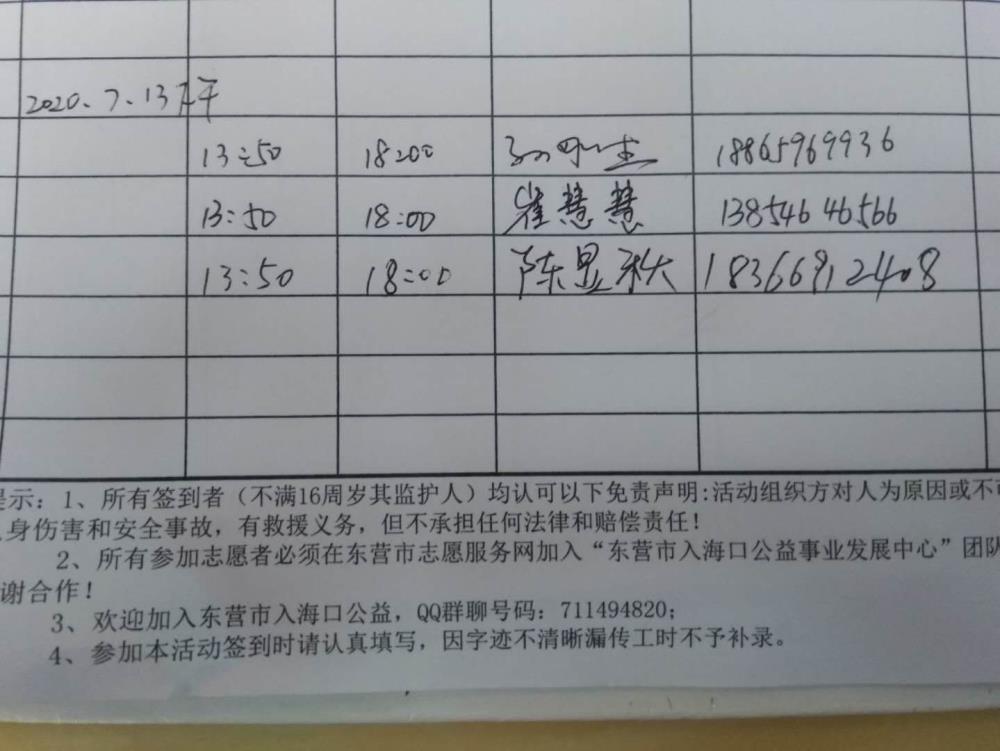 2020.7.13下午
13:50 18:00 18865969936
13:50 18:00 崔慧慧 13854646566
13:50 18:00 陈显秋 18366912408
提示：1、所有签到者（不满16周岁其监护人）均认可以下免责声明：活动组织方对人为原因或不可
身伤害和安全事故，有救援义务，但不承担任何法律和赔偿责任！
2、所有参加志愿者必须在东营市志愿服务网加入“东营市入海口公益事业发展中心”团队
谢合作！
3、欢迎加入东营市入海口公益，QQ群聊号码：711494820；
4、参加本活动签到时请认真填写，因字迹不清晰漏传工时不予补录。